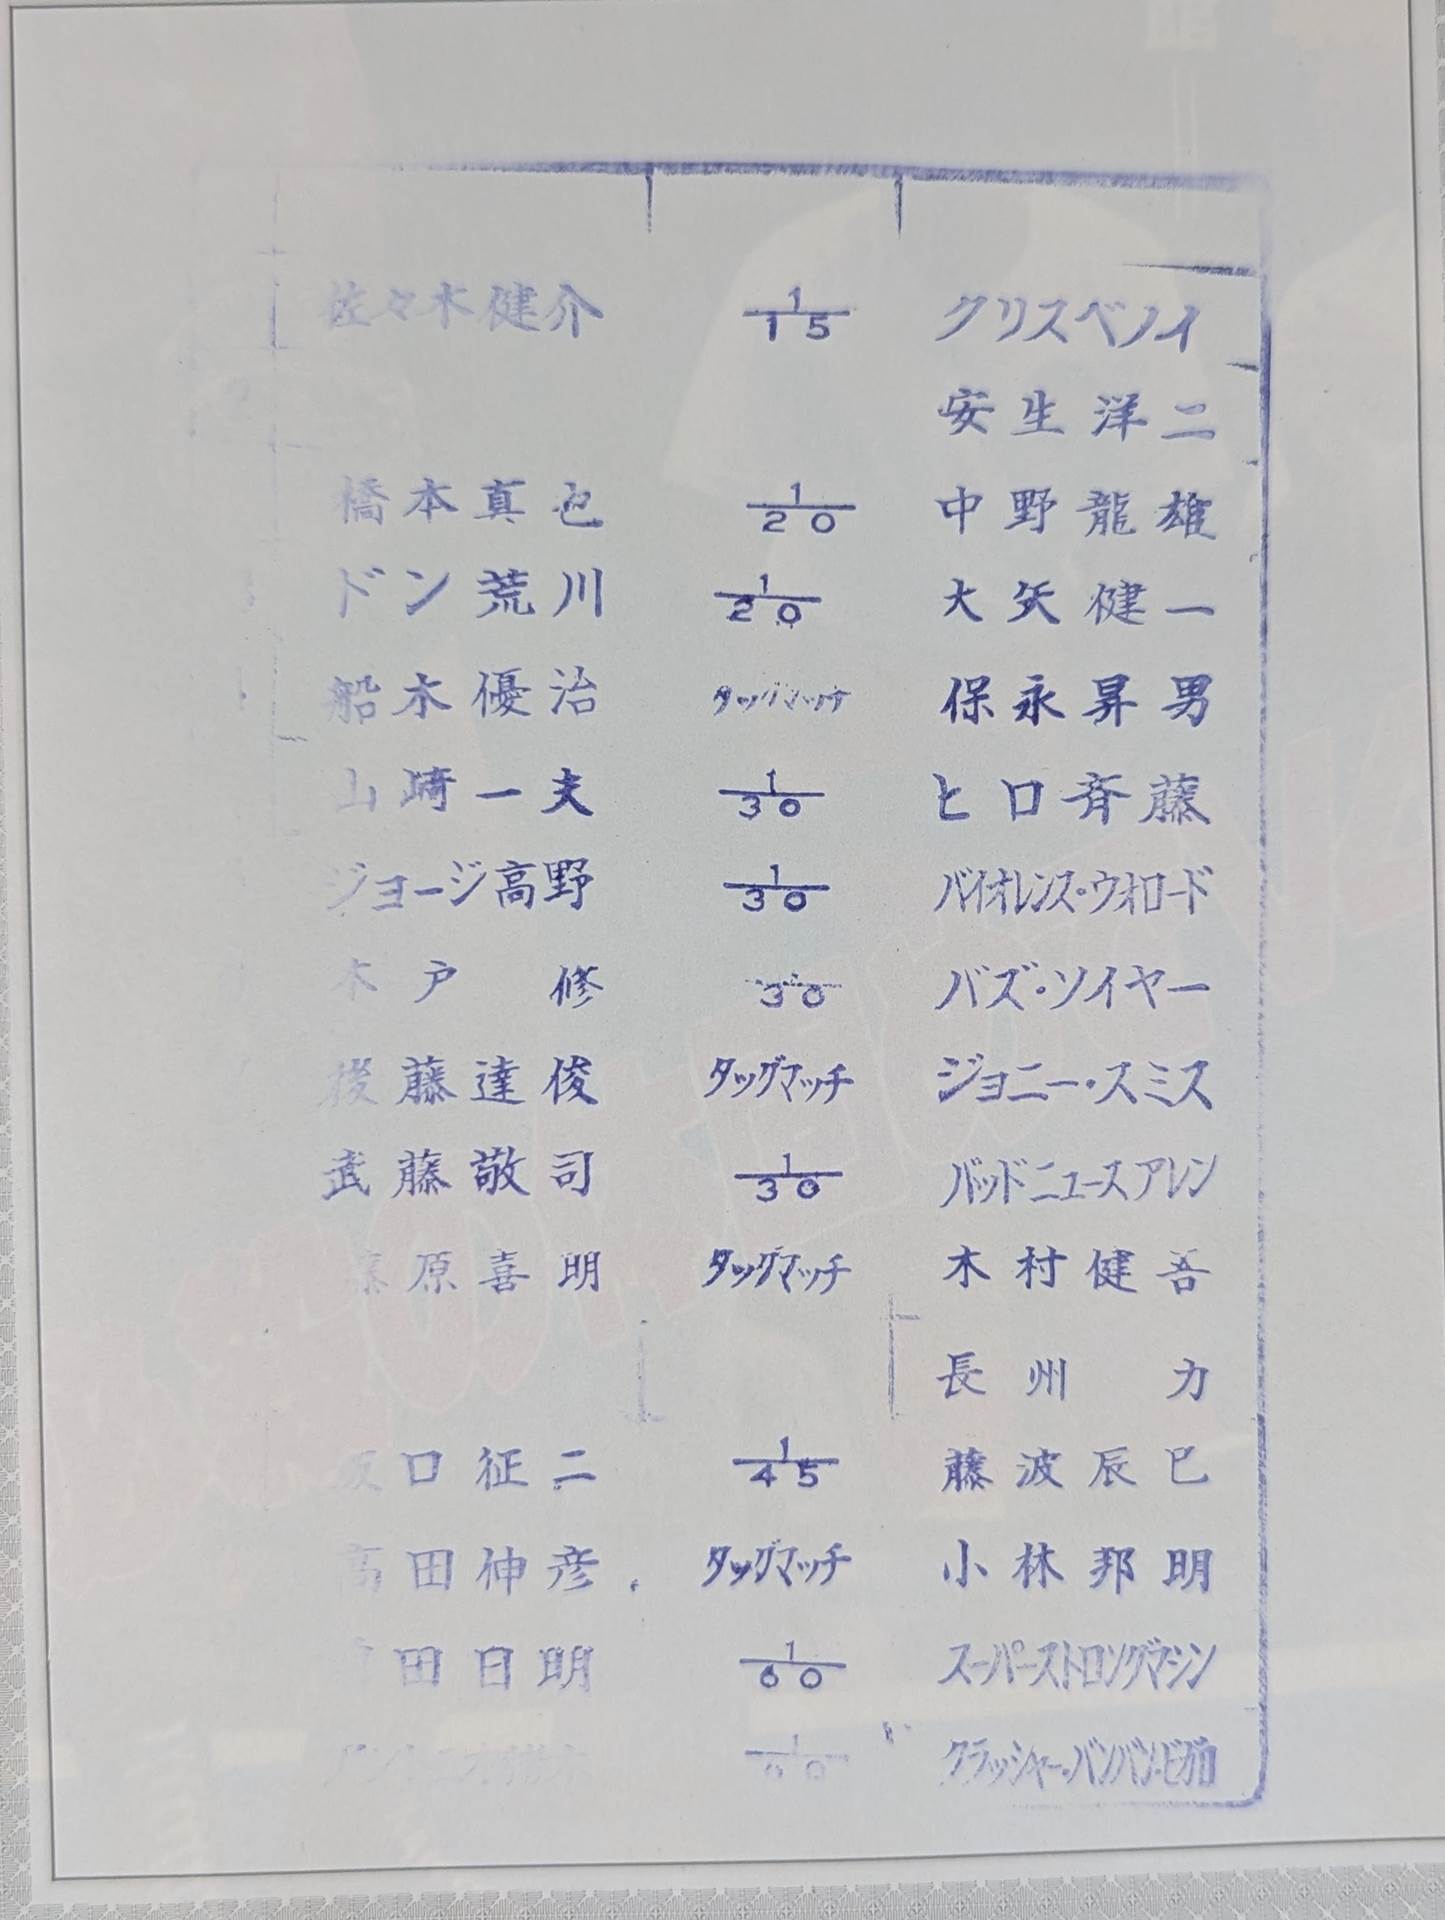 佐々木健介 1/15 クリスベノイ
安生洋二
橋本真也 1/20 中野龍雄
ドン荒川 1/20 大矢健一
船木優治 タッグマッチ 保永昇男
山崎一夫 1/30 ヒロ斉藤
ジョージ高野 1/30 バイオレンス・ウォロード
木戸 修 1/30 バズ・ソイヤー
後藤達俊 タッグマッチ ジョニー・スミス
武藤敬司 1/30 バッドニュースアレン
藤原喜明 タッグマッチ 木村健吾
長州 力
坂口征二 1/45 藤波辰巳
高田伸彦 タッグマッチ 小林邦明
田日明 1/60 スーパーストロングマシン
クラッシャー・バンバン・ビガロ